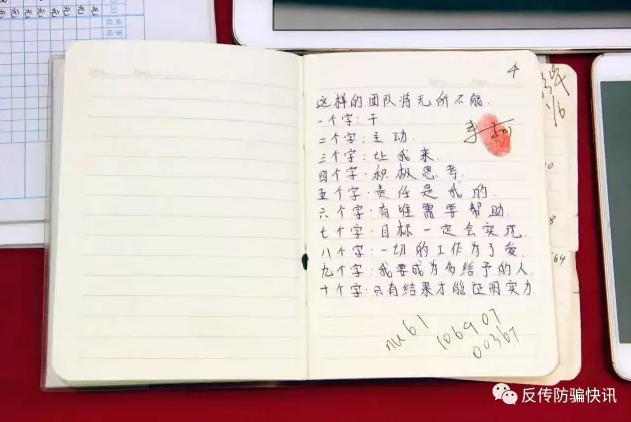 4
这样的团队将无所不能.
一个字:干
二个字:主动.
三个字:让我来.
四个字:积极思考.
五个字:责任是我的.
六个字:有谁需要帮助.
七个字:目标一定会实现.
八个字:一切的工作为了爱.
九个字:我要成为多给予的人.
十个字:只有结果才能证明实力
nub1
106907
00367
反传防骗快讯